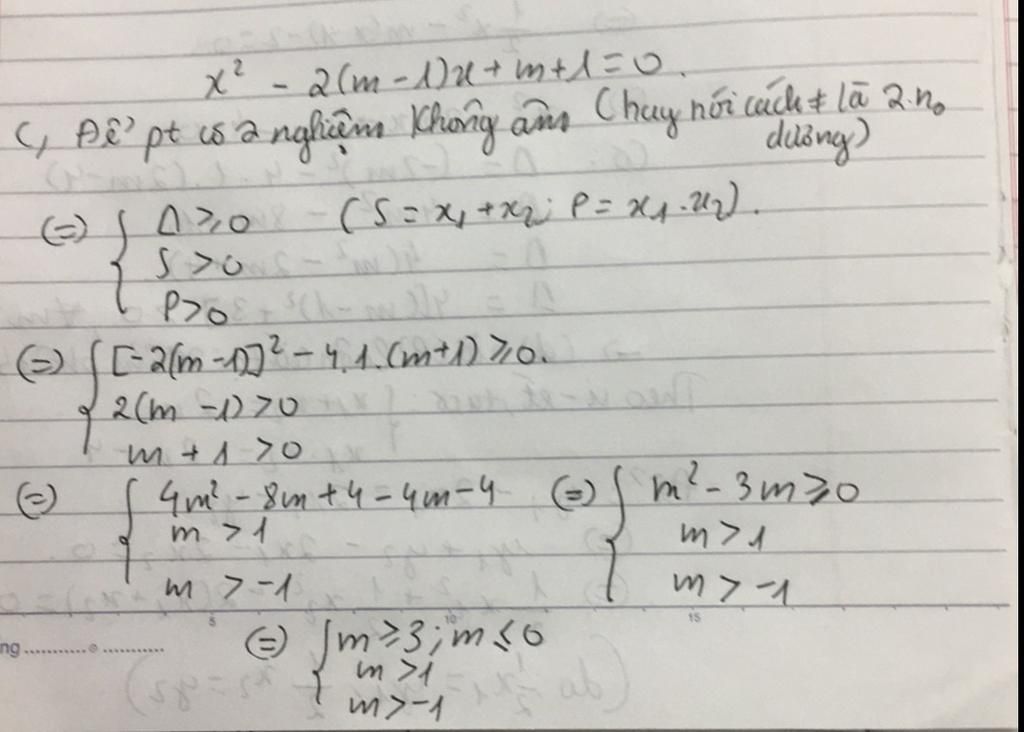 x² - 2(m-1)x + m + 1 = 0.
C, Để pt có 2 nghiệm không âm (hay nói cách ≠ là 2.n₀
dương)
(=) { Δ ≥ 0 (S = x₁ + x₂; P = x₁.x₂).
S > 0
P > 0
(=) { [-2(m-1)]² - 4.1.(m+1) ≥ 0.
2(m-1) > 0
m + 1 > 0
(=) { 4m² - 8m + 4 - 4m - 4 (=) { m² - 3m ≥ 0
m > 1 m > 1
m > -1 m > -1
5 10 15
ng
(=) { m ≥ 3; m ≤ 0
m > 1
m > -1